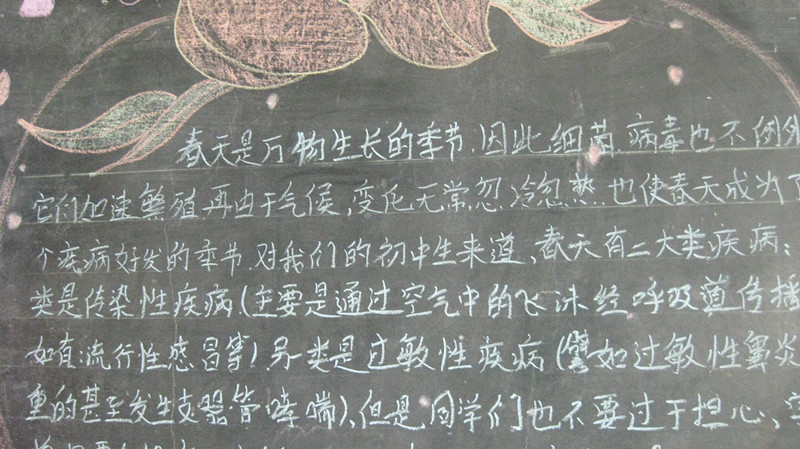 春天是万物生长的季节,因此细菌.病毒也不例外
它们加速繁殖再由于气候,变化无常忽冷忽热.也使春天成为了
个疾病好发的季节.对我们的初中生来道,春天有二大类疾病:
类是传染性疾病(主要是通过空气中的飞沫经呼吸道传播
如有:流行性感冒等)另类是过敏性疾病(譬如过敏性鼻炎
重的甚至发生支器管哮喘),但是同学们也不要过于担心,